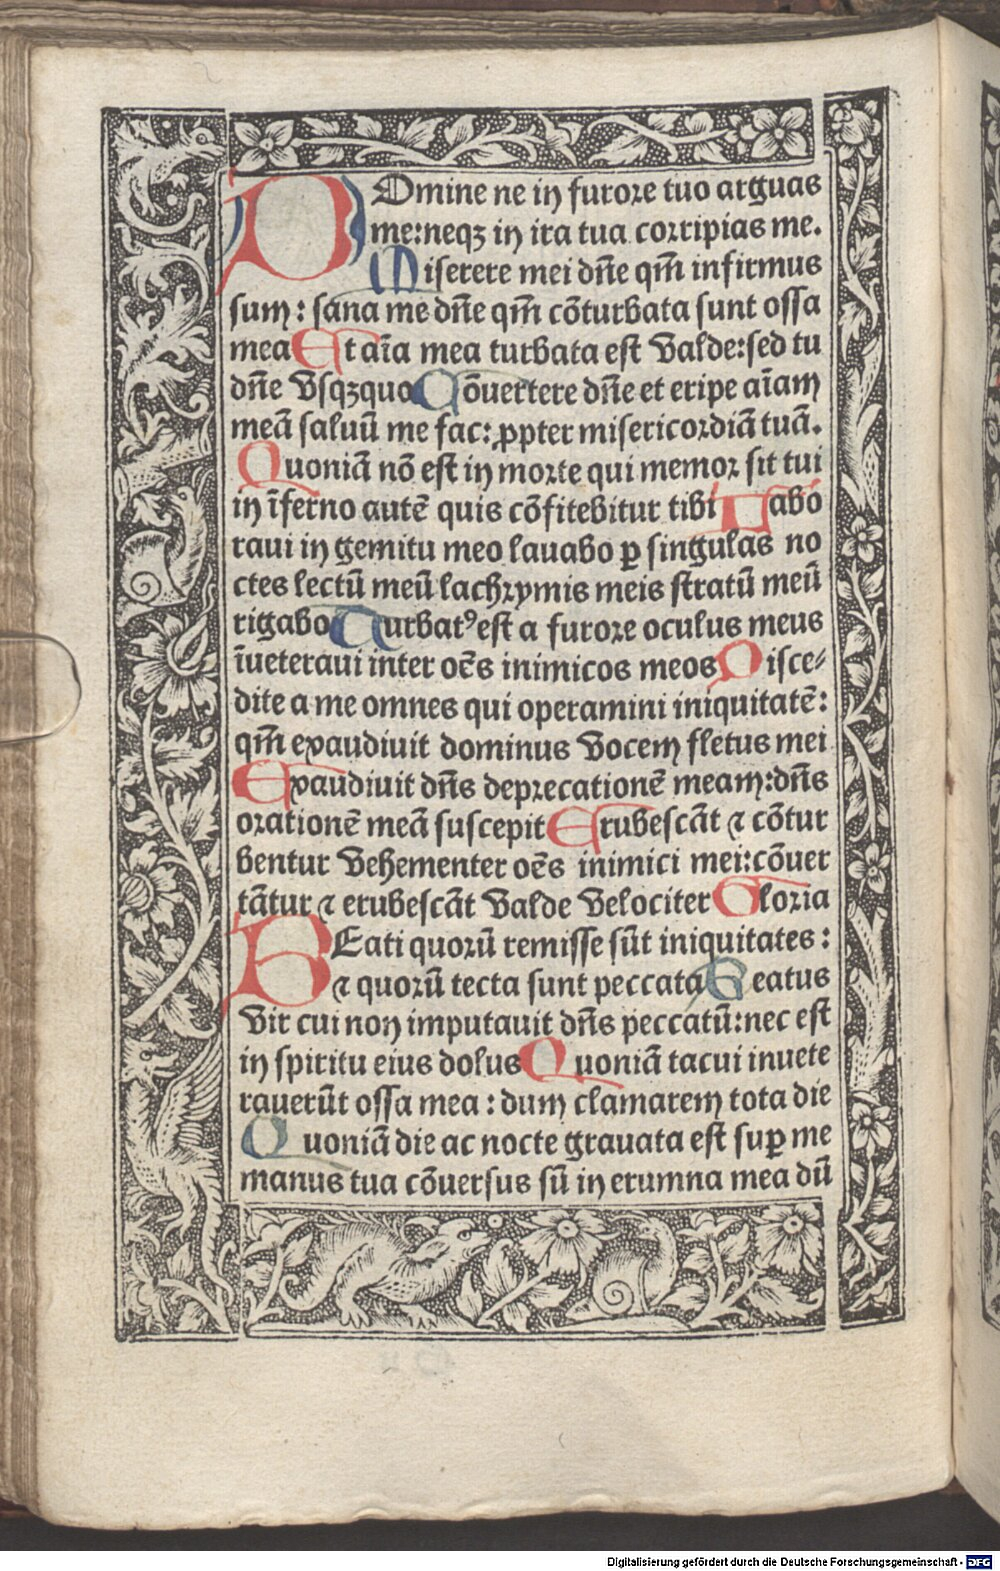 DOmine ne in furore tuo arguas
me:neqꝫ in ira tua corripias me.
Miserere mei dn̄e qm̄ infirmus
sum: sana me dn̄e qm̄ cōturbata sunt ossa
mea Et aīa mea turbata est valde:sed tu
dn̄e vsqꝫquo Cōuertere dn̄e et eripe aīam
meā saluū me fac: ꝓpter misericordiā tuā.
Quoniā nō est in morte qui memor sit tui
in īferno autē quis cōfitebitur tibi Labo
raui in gemitu meo lauabo ꝑ singulas no
ctes lectū meū lachrymis meis stratū meū
rigabo Turbatꝰ est a furore oculus meus
īueteraui inter oēs inimicos meos Disce⸗
dite a me omnes qui operamini iniquitatē:
qm̄ exaudiuit dominus vocem fletus mei
Exaudiuit dn̄s deprecationē meam:dn̄s
orationē meā suscepit Erubescāt ⁊ cōtur
bentur vehementer oēs inimici mei:cōuer
tātur ⁊ erubescāt valde velociter Gloria
BEati quorū remisse sūt iniquitates:
⁊ quorū tecta sunt peccata Beatus
vir cui non imputauit dn̄s peccatū:nec est
in spiritu eius dolus Quoniā tacui inuete
rauerūt ossa mea: dum clamarem tota die
Quoniā die ac nocte grauata est suꝑ me
manus tua cōuersus sū in erumna mea dū
Digitalisierung gefördert durch die Deutsche Forschungsgemeinschaft - DFG